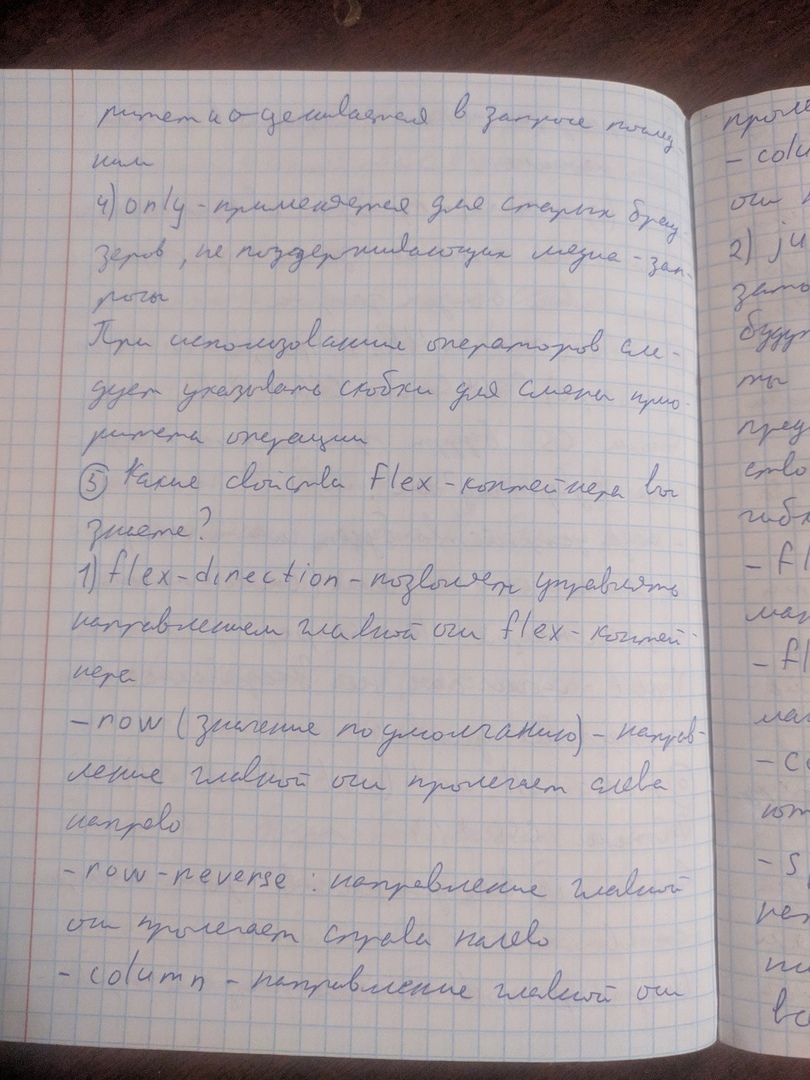 ритета оценивается в запросе послед-
ним
4) only - применяется для старых брау-
зеров, не поддерживающих медиа-зап-
росы
При использовании операторов сле-
дует указывать скобки для смены прио-
ритета операции
5 Какие свойства flex-контейнера вы
знаете?
1) flex-direction - позволяет управлять
направлением главной оси flex-контей-
нера
- row (значение по умолчанию) - направ-
ление главной оси пролегает слева
направо
- row-reverse: направление главной
оси пролегает справа налево
- column - направление главной оси
проле
- colu
оси
2) ju
будут
ты
пред
ство
гибк
- fl
- fl
- s